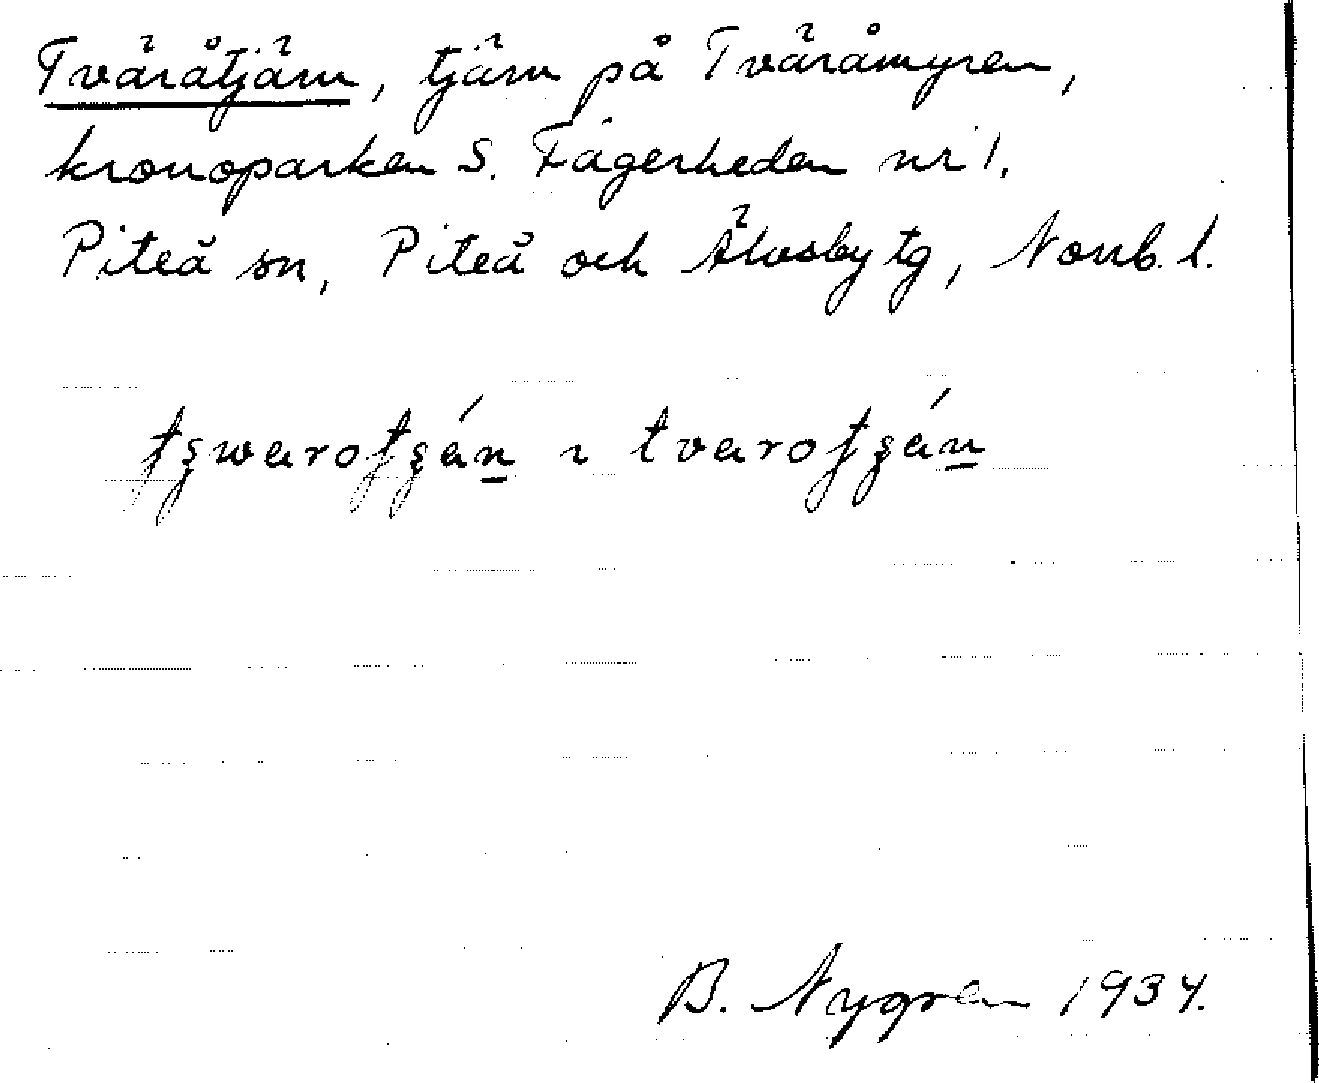 Tväråtjärn, tjärn på Tväråmyren,
kronoparken S. Fagerheden nr 1.
Piteå sn, Piteå och Älvsby tg, Norrb. l.
B. Nygren 1934.